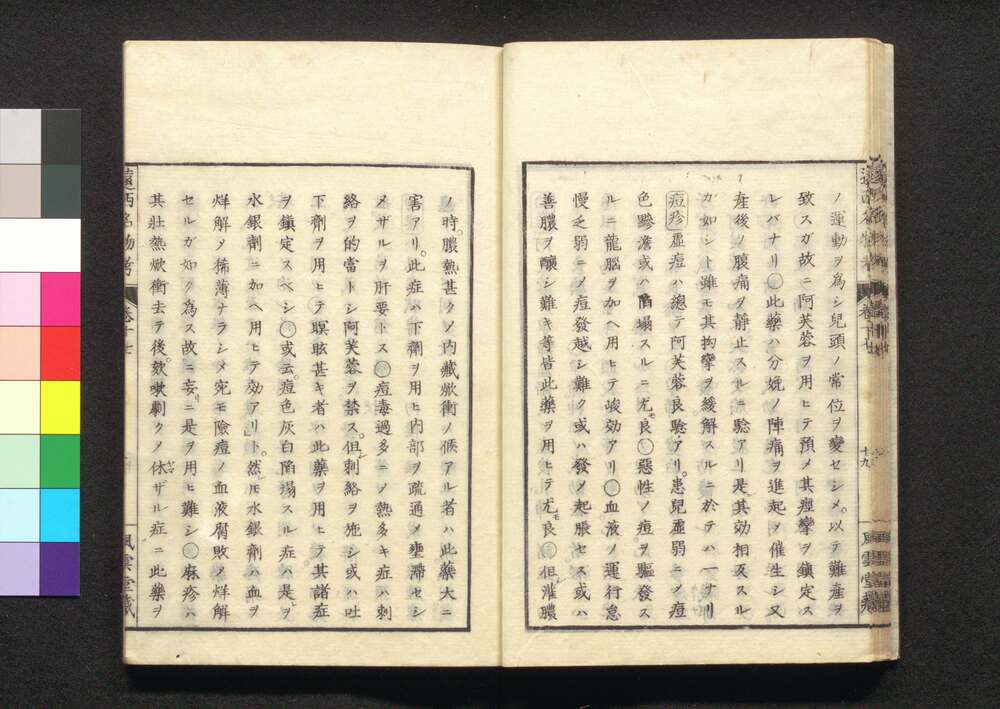 ノ運動ヲ為シ兒頭ノ常位ヲ變セシメ。以テ難産ヲ
致スガ故ニ阿芙蓉ヲ用ヒテ預メ其痙攣ヲ鎮定ス
レバナリ〇此藥ハ分娩ノ陣痛ヲ進起ノ催生シ又
産後ノ腹痛ヲ静止スルニ驗アリ是其効相反スル
ガ如シト雖モ其拘攣ヲ緩解スルニ於テハ一ナリ
痘疹虚痘ハ總テ阿芙蓉良驗アリ。患兒虚弱ニノ痘
色黲澹或ハ陷塌スルニ尤良〇惡性ノ痘ヲ驅發ス
ルニ龍腦ヲ加ヘ用ヒテ峻効アリ〇血液ノ運行怠
慢乏弱ニノ痘發越シ難ク或ハ發ノ起脹セス或ハ
善膿ヲ釀シ難キ等皆此藥ヲ用ヒテ尤良〇但灌膿
ノ時。膿熱甚クノ内藏焮衝ノ候アル者ハ此藥大ニ
害アリ。此症ハ下劑ヲ用ヒ内部ヲ疏通メ壅滞セシ
メザルヲ肝要トス〇痘毒過多ニノ熱多キ症ハ刺
絡ヲ的當トシ阿芙蓉ヲ禁ス。但刺絡ヲ施シ或ハ吐
下劑ヲ用ヒテ瞑眩甚キ者ハ此藥ヲ用ヒテ其諸症
ヲ鎮定スベシ〇或云。痘色灰白陷塌スル症ハ是ヲ
水銀劑ニ加ヘ用ヒテ効アリト。然モ水銀劑ハ血ヲ
烊解メ稀薄ナラシメ宛モ險痘ノ血液腐敗ノ烊解
セルガ如ク為ス故ニ妄リニ是ヲ用ヒ難シ〇麻疹ハ
其壯熱焮衝去テ後。欬嗽劇クメ休ザル症ニ此藥ヲ
遠西名物考
卷十七
十九
風雲堂藏